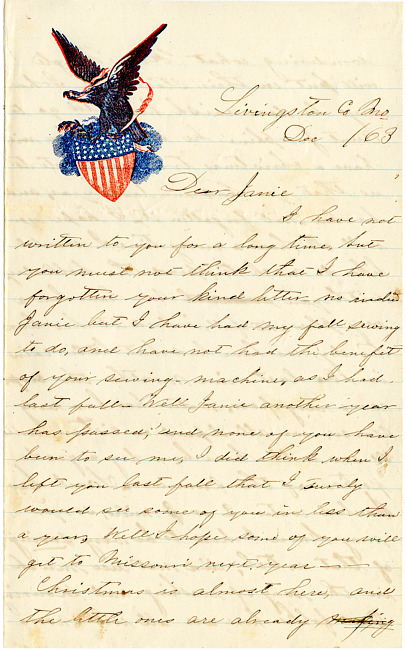 Livingston Co Mo
Dec /63
Dear Janie
I have not
written to you for a long time, but
you must not think that I have
forgotten your kind letter no indeed
Janie but I have had my fall sewing
to do, and have not had the benefit
of your sewing-machine, as I had
last fall- Well Janie another year
has passed, and none of you have
been to see me, I did think when I
left you last fall that I surely
would see some of you in less than
a year, Well I hope some of you will
get to Missouri next year—
Christmas is almost here, and
the little ones are already making